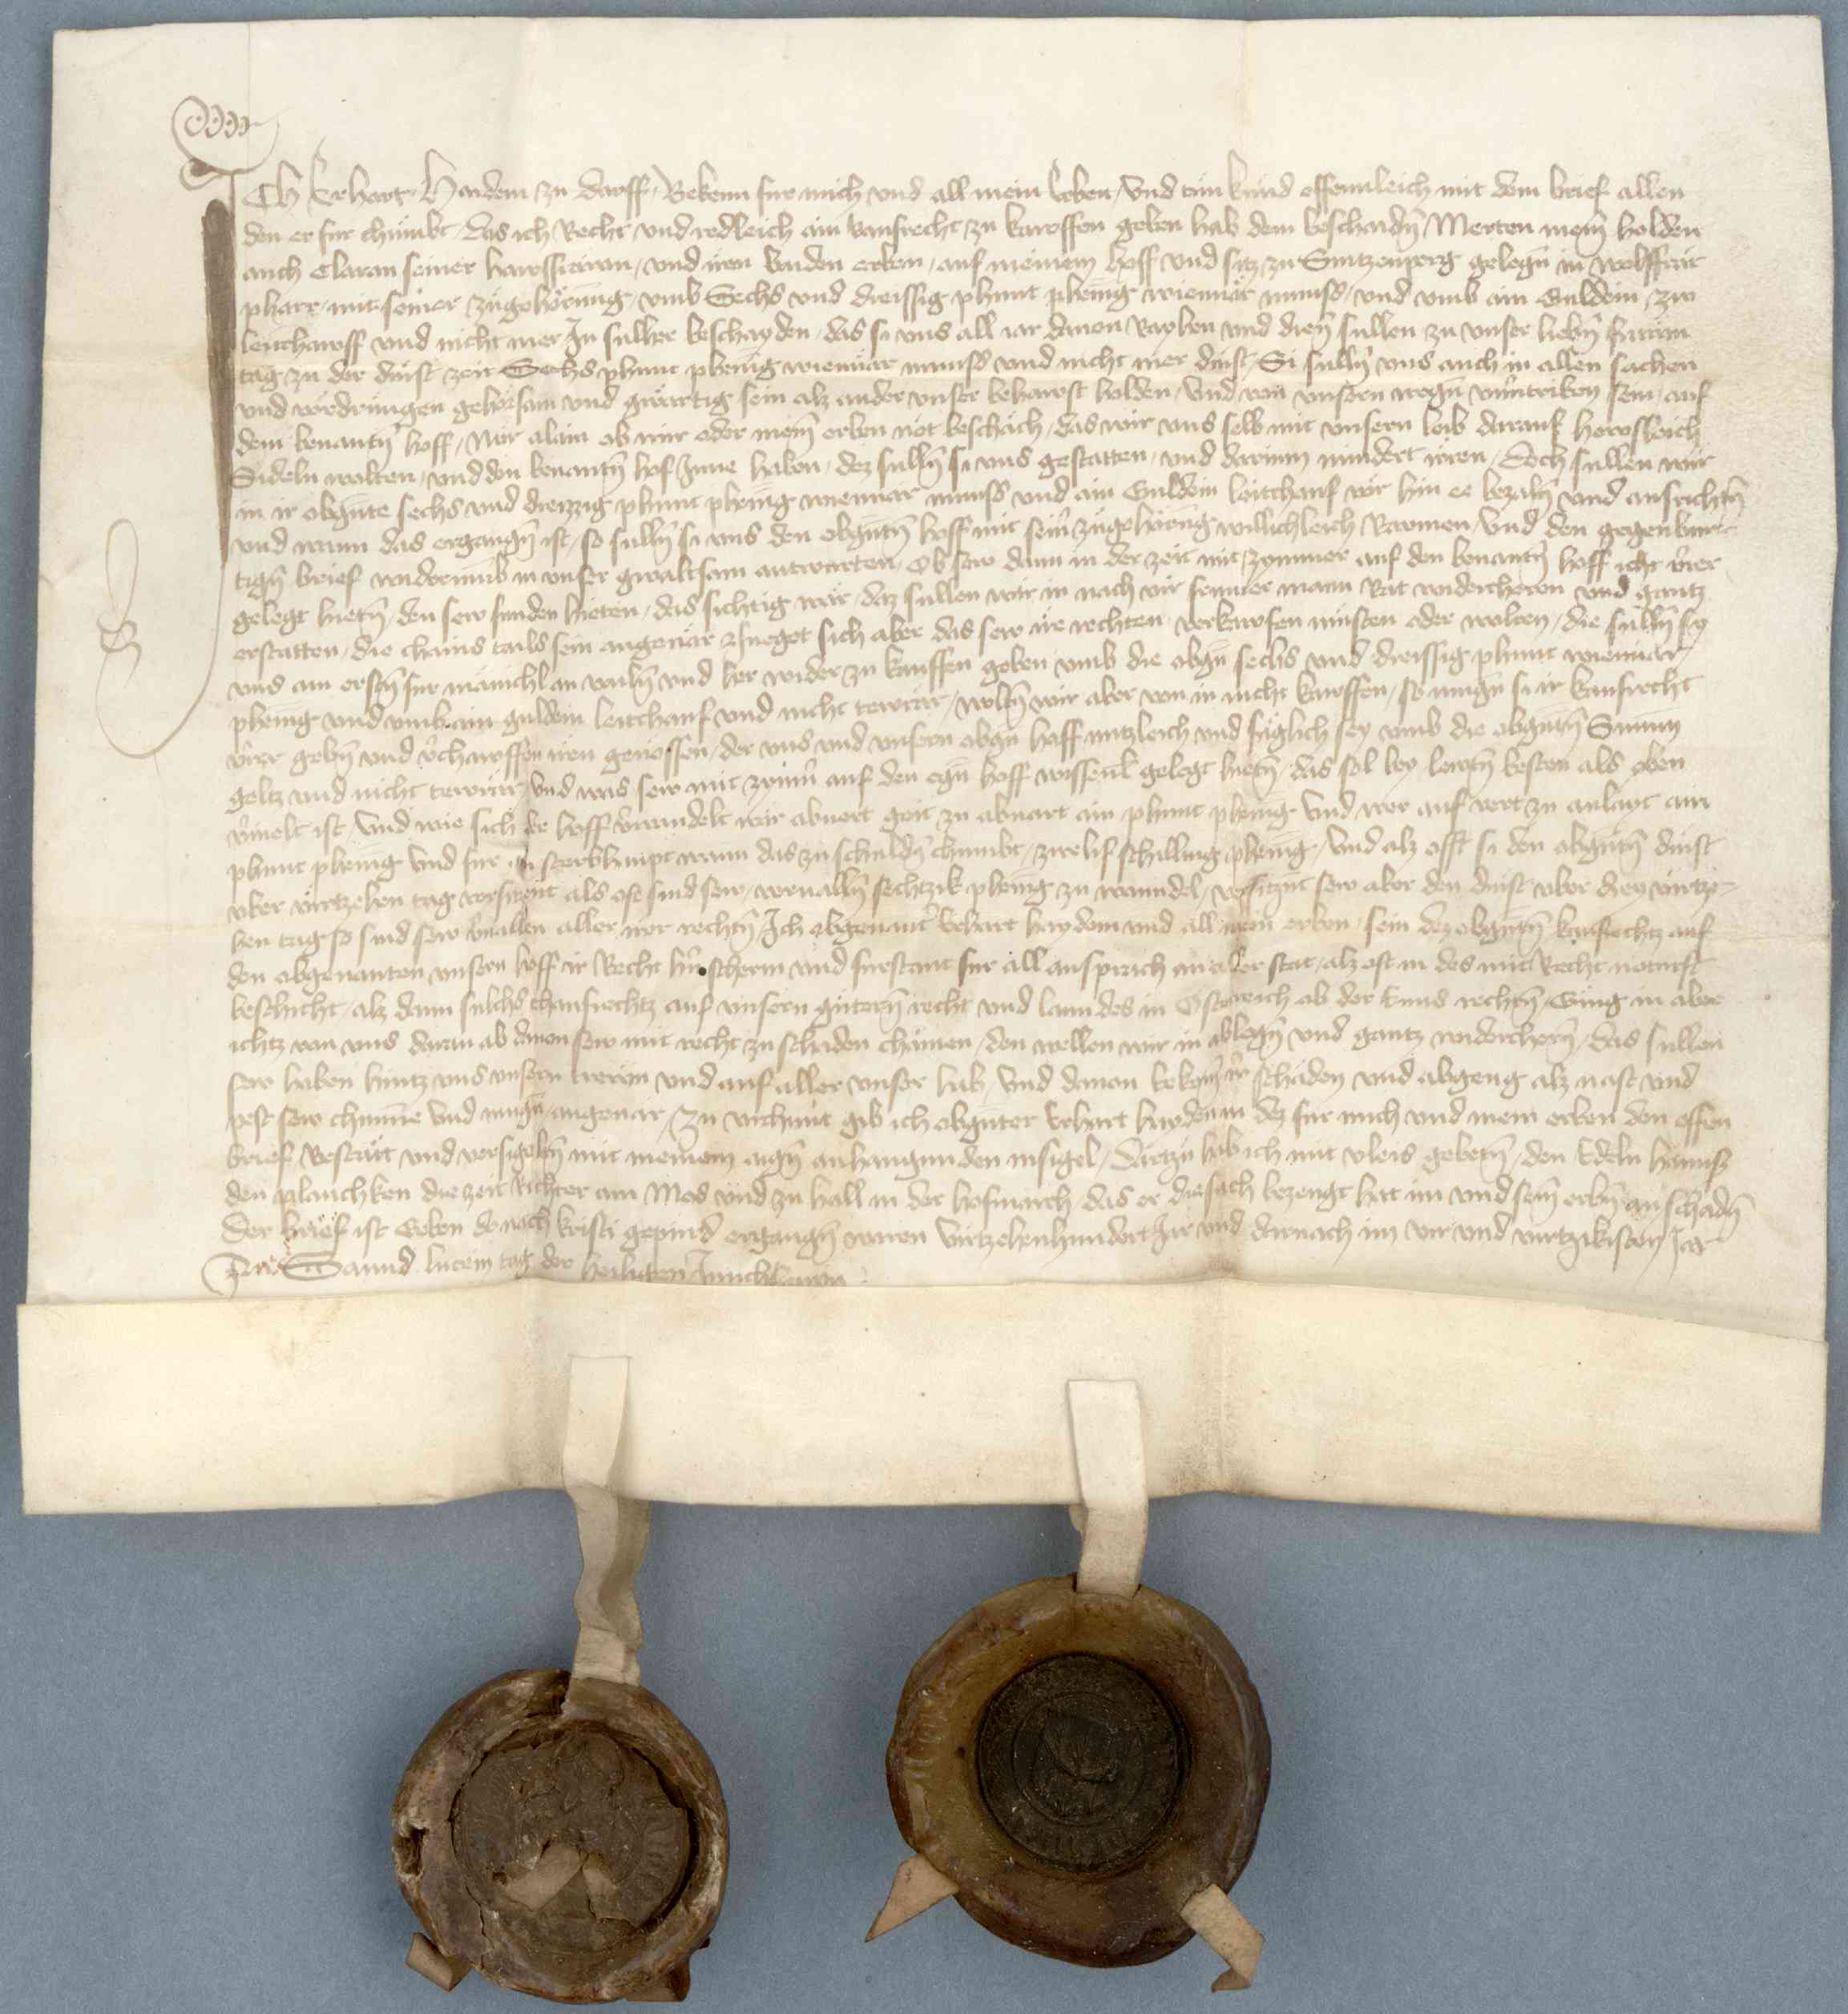 Ich Erhart Haidem zu Dorff Bekenn fur mich und all mein Erben und tun kund offennleich mit dem brief allen
den er fur chumbt das ich Recht und redleich ain kaufrecht zu kauffen geben hab dem beschaidn̄ Merten meim̄ holden
auch Claran seiner hawssfrawn und iren baiden erben auf meinem hoff und sitz zu Sintzenperg gelegn̄ in wolffarn̄
pharr mit seiner zugehörung umb Sechs und dreissig phunt phenīg wienn̄ar munss und umb ain Guldein zw
leitchawff und nicht mer In sulher beschayden das si uns all iar davon Rayhen und dien̄ sullen zu unser liebn̄ frawn
tag zu der dinst zeit Sechs phunt phenīg wienn̄ar munss und nicht mer dinst Si sulln̄ uns auch in allen sachen
und vordrungen gehorsam und gwartig sein alz ander unser behawst holden und von unsern wegn̄ unvertriben sein auf
dem benantn̄ hoff Nur alain ob mir oder meim̄ erben not beschäch das wir uns selb mit unsern leib darauf hewsleich
Sideln wolten und den benantn̄ hof Inne haben dez sulln̄ si uns gestatten und darinn nindert irren doch sullen wir
in ir obgn̄te sechs und dreizzig phunt phenīg wienn̄ar munss und ain Guldein leitchauf vor hin ee bezaln̄ und ausrichtn̄
und wann das ergangn̄ ist so sulln̄ si uns den obgn̄tn̄ hoff mit seiner zugehörūng willichleich Rawmen und den gegenburt
tign̄ brief widerumb in unser gwaltsam antwurten Ob sew dann in der zeit mit zymmer auf den benantn̄ hoff icht uber
gelegt hietn̄ den sew funden hieten das sichtig wär daz sullen wir in nach vir frumer mann Rat widercheren und gantz
erstatten die chains tails sein angevär Fueget sich aber das sew ire rechten verkawfen musten oder wolten die sulln̄ sy
uns am erstn̄ fur mänichl an vailn̄ und her wider zu kauffen geben umb die obgn̄ sechs und dreissig phunt wienn̄ar
phenīg und umb ain guldein leitchauf und nicht tewrär wolln̄ wir aber von in nicht kauffen so mugn̄ si ir kaufrecht
uber gebn̄ und verchawffen iren genossen der uns und unsern obgn̄ hoff nutzleich und fuglich sey umb die obgn̄tn̄ Summ
geltz und nicht tewrär und was sew mit zymer auf den egn̄ hoff wissentl̄ gelegt hietn̄ das sol bey lewtn̄ besten als oben
vermelt ist und wie sich der hoff verwandelt wär abvert geit zu abvart ain phunt phenīg und wer auf vert zu anlayt ain
phunt phenīg und fur ain sterbhaupt wann das zu schuldn̄ chumbt zwelif schilling phenīg und alz offt si den obgn̄tn̄ dinst
uber virtzehen tag versitzent als oft sind sew vervalln̄ sechtzik phenīg zu wanndel versitznt sew aber den dinst uber drey virtze
hen tag so sind sew vervallen aller irer rechtn̄ Ich obgenant̄ Erhart haydem und all mein erben sein dez obgn̄tn̄ kaufrechtz auf
den obgenanten unsern hoff ir Recht herr scherm und furstant fur all ansprach an aller stat alz oft in des mit Recht noturft
beschicht alz dann sulchs chaufrechtz auf unsern gutern̄ recht und lanndes in Österreich ob der Enns rechtn̄ Gieng in aber
ichtz von uns daran ab davon sew mit recht zu schaden chämen den wellen wir in ablegn̄ und gantz widerchern̄ das sullen
sew haben hintz uns unsern trewn und auf aller unser hab und davon bekomen ir schäden und abgeng alz nast und
pest sew chunne und mugn̄ angevär Zu urchunt gib ich obgn̄ter Erhart haydem dez fur mich und mein erben den offen
brief Bestatt und versigeltn̄ mit meinem aign̄ anhangunden insigel Dartzu hab ich mit vleis gebetn̄ den Edeln hanns
den plauchken die zeit Richter am Mos und zu hall in der hofmarch das er die sach bezeugt hat im und seim̄ erbn̄ an schadn̄
der brief ist Geben do nach kristi gepurd ergangn̄ waren virtzehenhundert Jar und darnach im vir und virtzikisten Jar
Sannd lucein tag der heiligen Junchfrawn